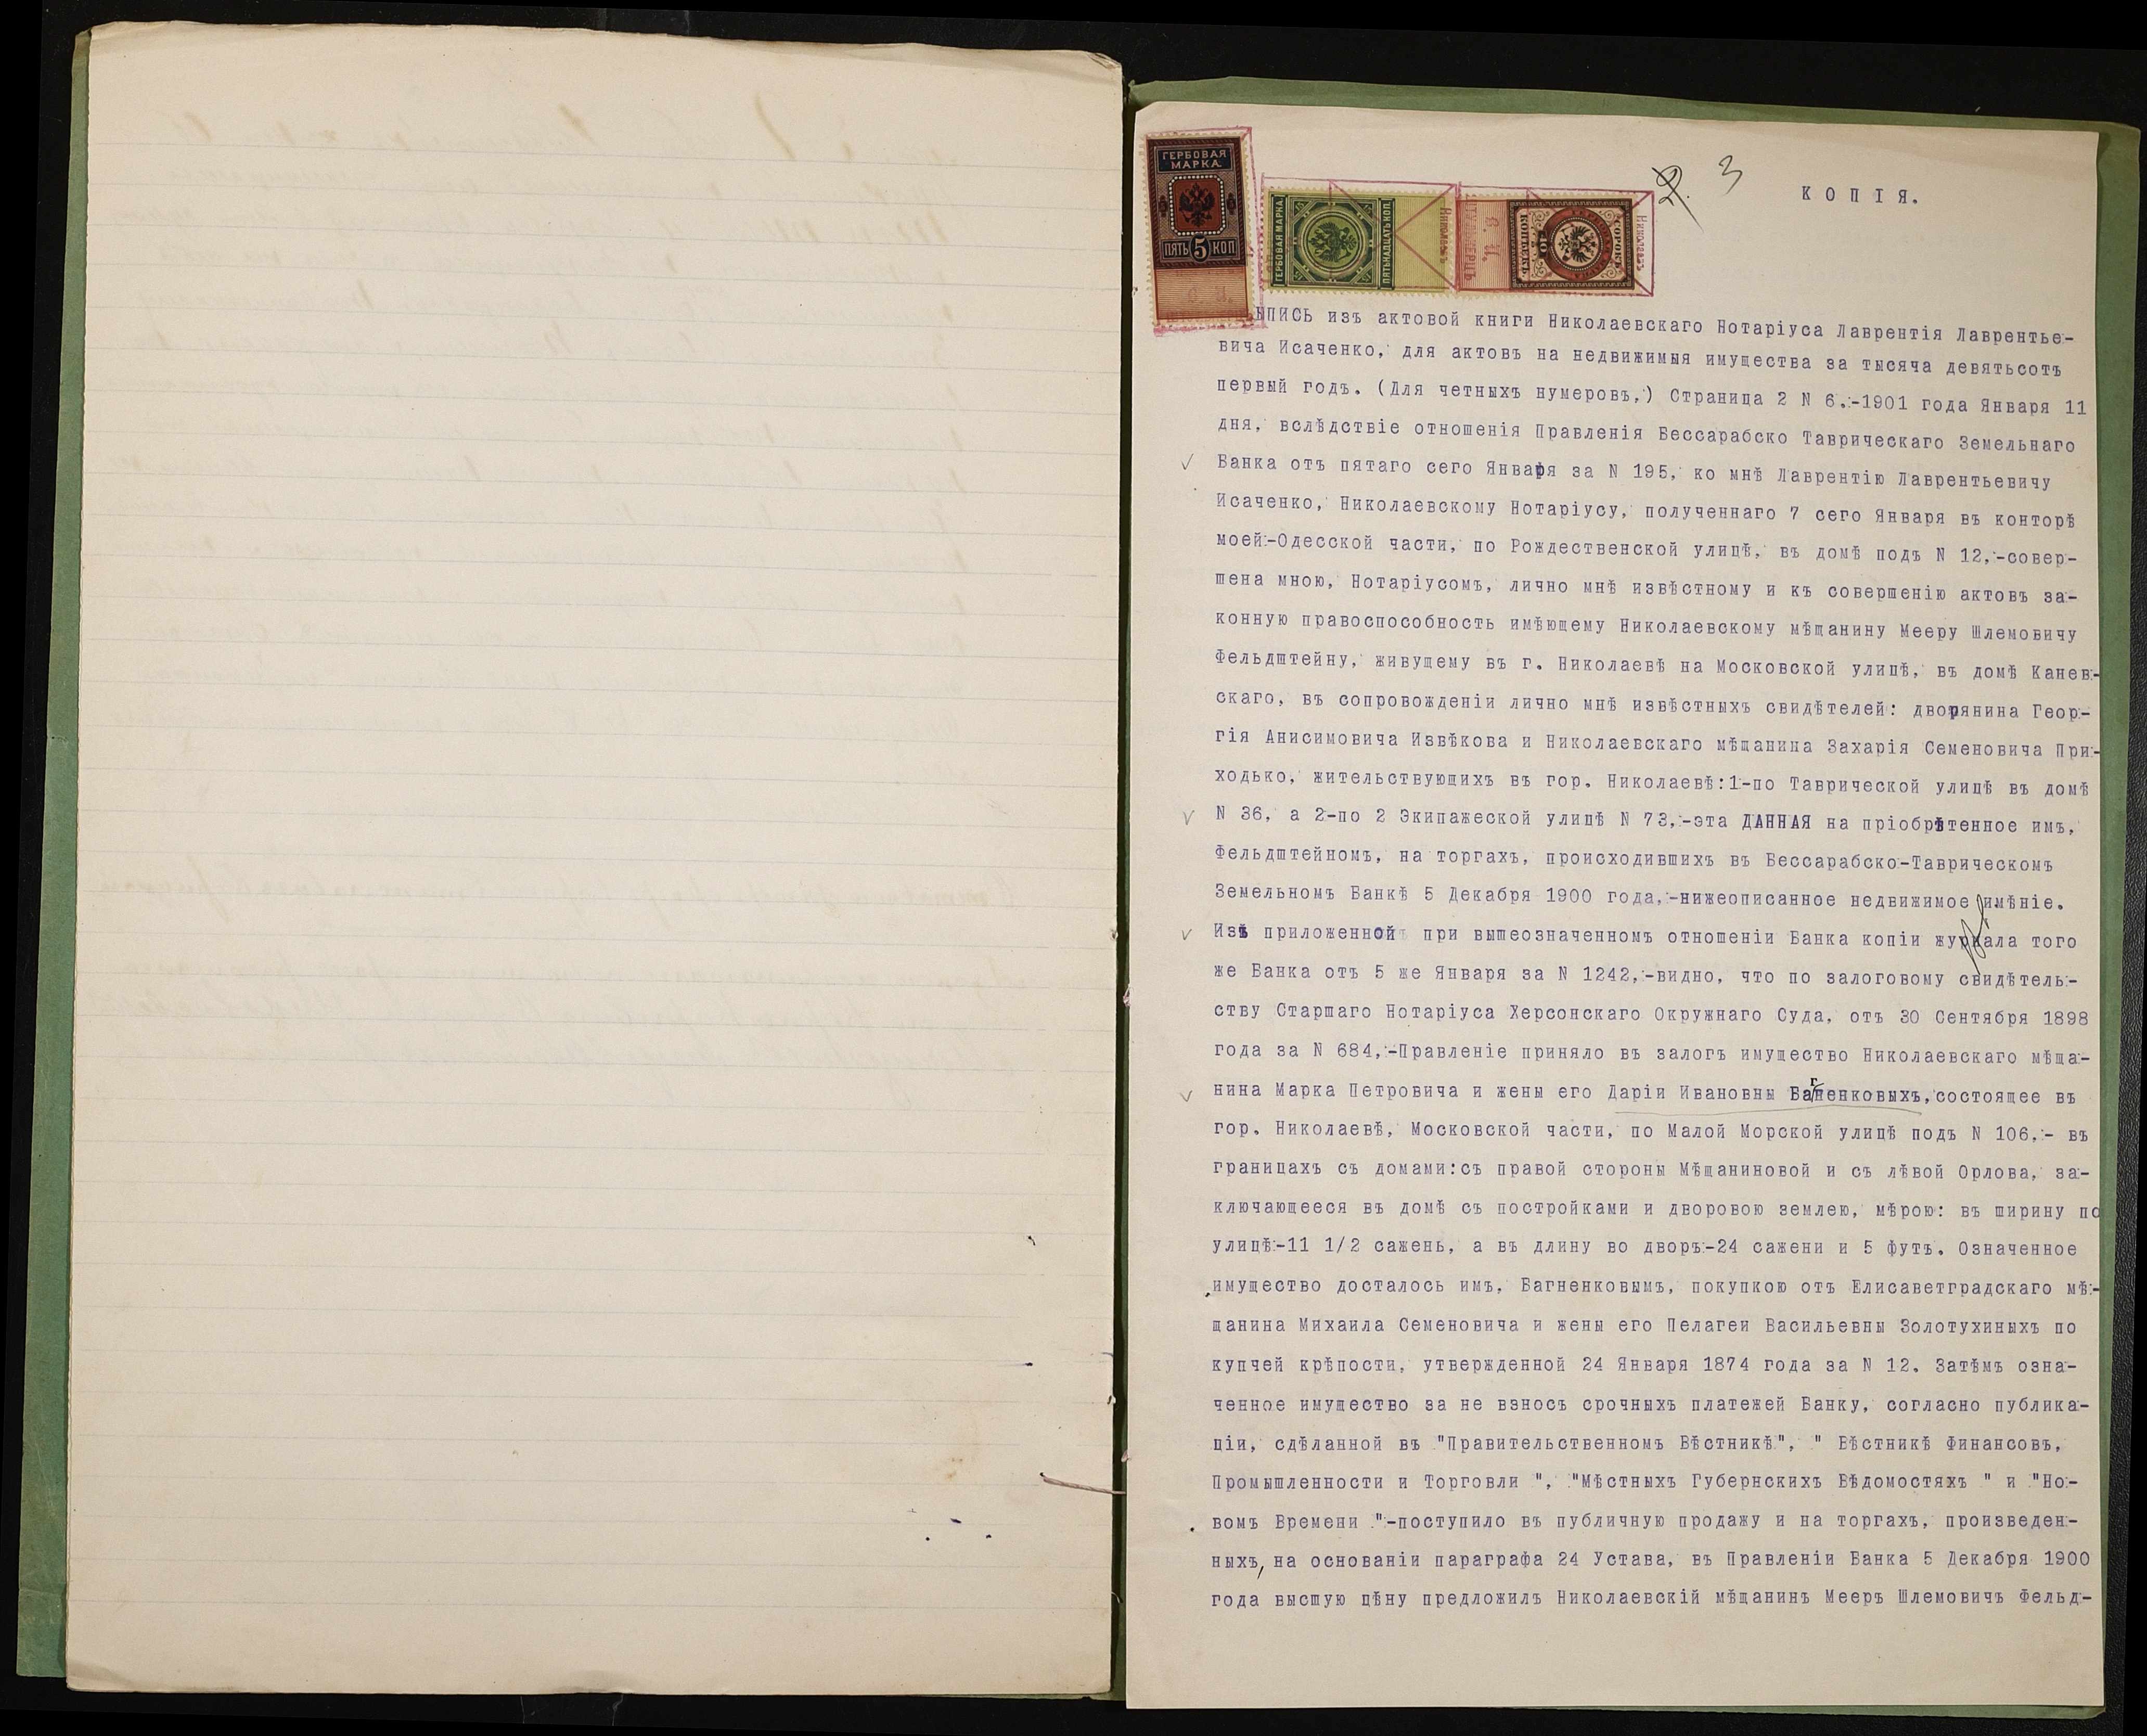 2. 3
КОПІЯ.
ГЕРБОВАЯ
МАРКА
ПЯТЬ 5 КОП
ГЕРБОВАЯ МАРКА
ПЯТНАДЦАТЬ КОП.
Николаевъ
ЫПИСЬ изъ актовой книги Николаевскаго Нотаріуса Лаврентія Лаврентье-
вича Исаченко, для актовъ на недвижимыя имущества за тысяча девятьсотъ
первый годъ. (Для четныхъ нумеровъ,) Страница 2 N 6.-1901 года Января 11
дня, вслѣдствіе отношенія Правленія Бессарабско Таврическаго Земельнаго
Банка отъ пятаго сего Января за N 195, ко мнѣ Лаврентію Лаврентьевичу
Исаченко, Николаевскому Нотаріусу, полученнаго 7 сего Января въ конторѣ
моей-Одесской части, по Рождественской улицѣ, въ домѣ подъ N 12,-совер-
шена мною, Нотаріусомъ, лично мнѣ извѣстному и къ совершенію актовъ за-
конную правоспособность имѣющему Николаевскому мѣщанину Мееру Шлемовичу
Фельдштейну, живущему въ г. Николаевѣ на Московской улицѣ, въ домѣ Канев-
скаго, въ сопровожденіи лично мнѣ извѣстныхъ свидѣтелей: дворянина Геор-
гія Анисимовича Извѣкова и Николаевскаго мѣщанина Захарія Семеновича При-
ходько, жительствующихъ въ гор. Николаевѣ:1-по Таврической улицѣ въ домѣ
N 36, а 2-по 2 Экипажеской улицѣ N 73,-эта ДАННАЯ на пріобрѣтенное имъ,
Фельдштейномъ, на торгахъ, происходившихъ въ Бессарабско-Таврическомъ
Земельномъ Банкѣ 5 Декабря 1900 года,-нижеописанное недвижимое имѣніе.
Изъ приложенной при вышеозначенномъ отношеніи Банка копіи журнала того
же Банка отъ 5 же Января за N 1242,-видно, что по залоговому свидѣтель-
ству Старшаго Нотаріуса Херсонскаго Окружнаго Суда, отъ 30 Сентября 1898
года за N 684,-Правленіе приняло въ залогъ имущество Николаевскаго мѣща-
нина Марка Петровича и жены его Даріи Ивановны Багненковыхъ,состоящее въ
гор. Николаевѣ, Московской части, по Малой Морской улицѣ подъ N 106,- въ
границахъ съ домами:съ правой стороны Мѣщаниновой и съ лѣвой Орлова, за-
ключающееся въ домѣ съ постройками и дворовою землею, мѣрою: въ ширину по
улицѣ-11 1/2 сажень, а въ длину во дворъ-24 сажени и 5 футъ. Означенное
имущество досталось имъ, Багненковымъ, покупкою отъ Елисаветградскаго мѣ-
щанина Михаила Семеновича и жены его Пелагеи Васильевны Золотухиныхъ по
купчей крѣпости, утвержденной 24 Января 1874 года за N 12. Затѣмъ озна-
ченное имущество за не взносъ срочныхъ платежей Банку, согласно публика-
ціи, сдѣланной въ "Правительственномъ Вѣстникѣ", " Вѣстникѣ Финансовъ,
Промышленности и Торговли ", "Мѣстныхъ Губернскихъ Вѣдомостяхъ " и "Но-
вомъ Времени "-поступило въ публичную продажу и на торгахъ, произведен-
ныхъ, на основаніи параграфа 24 Устава, въ Правленіи Банка 5 Декабря 1900
года высшую цѣну предложилъ Николаевскій мѣщанинъ Мееръ Шлемовичъ Фельд-